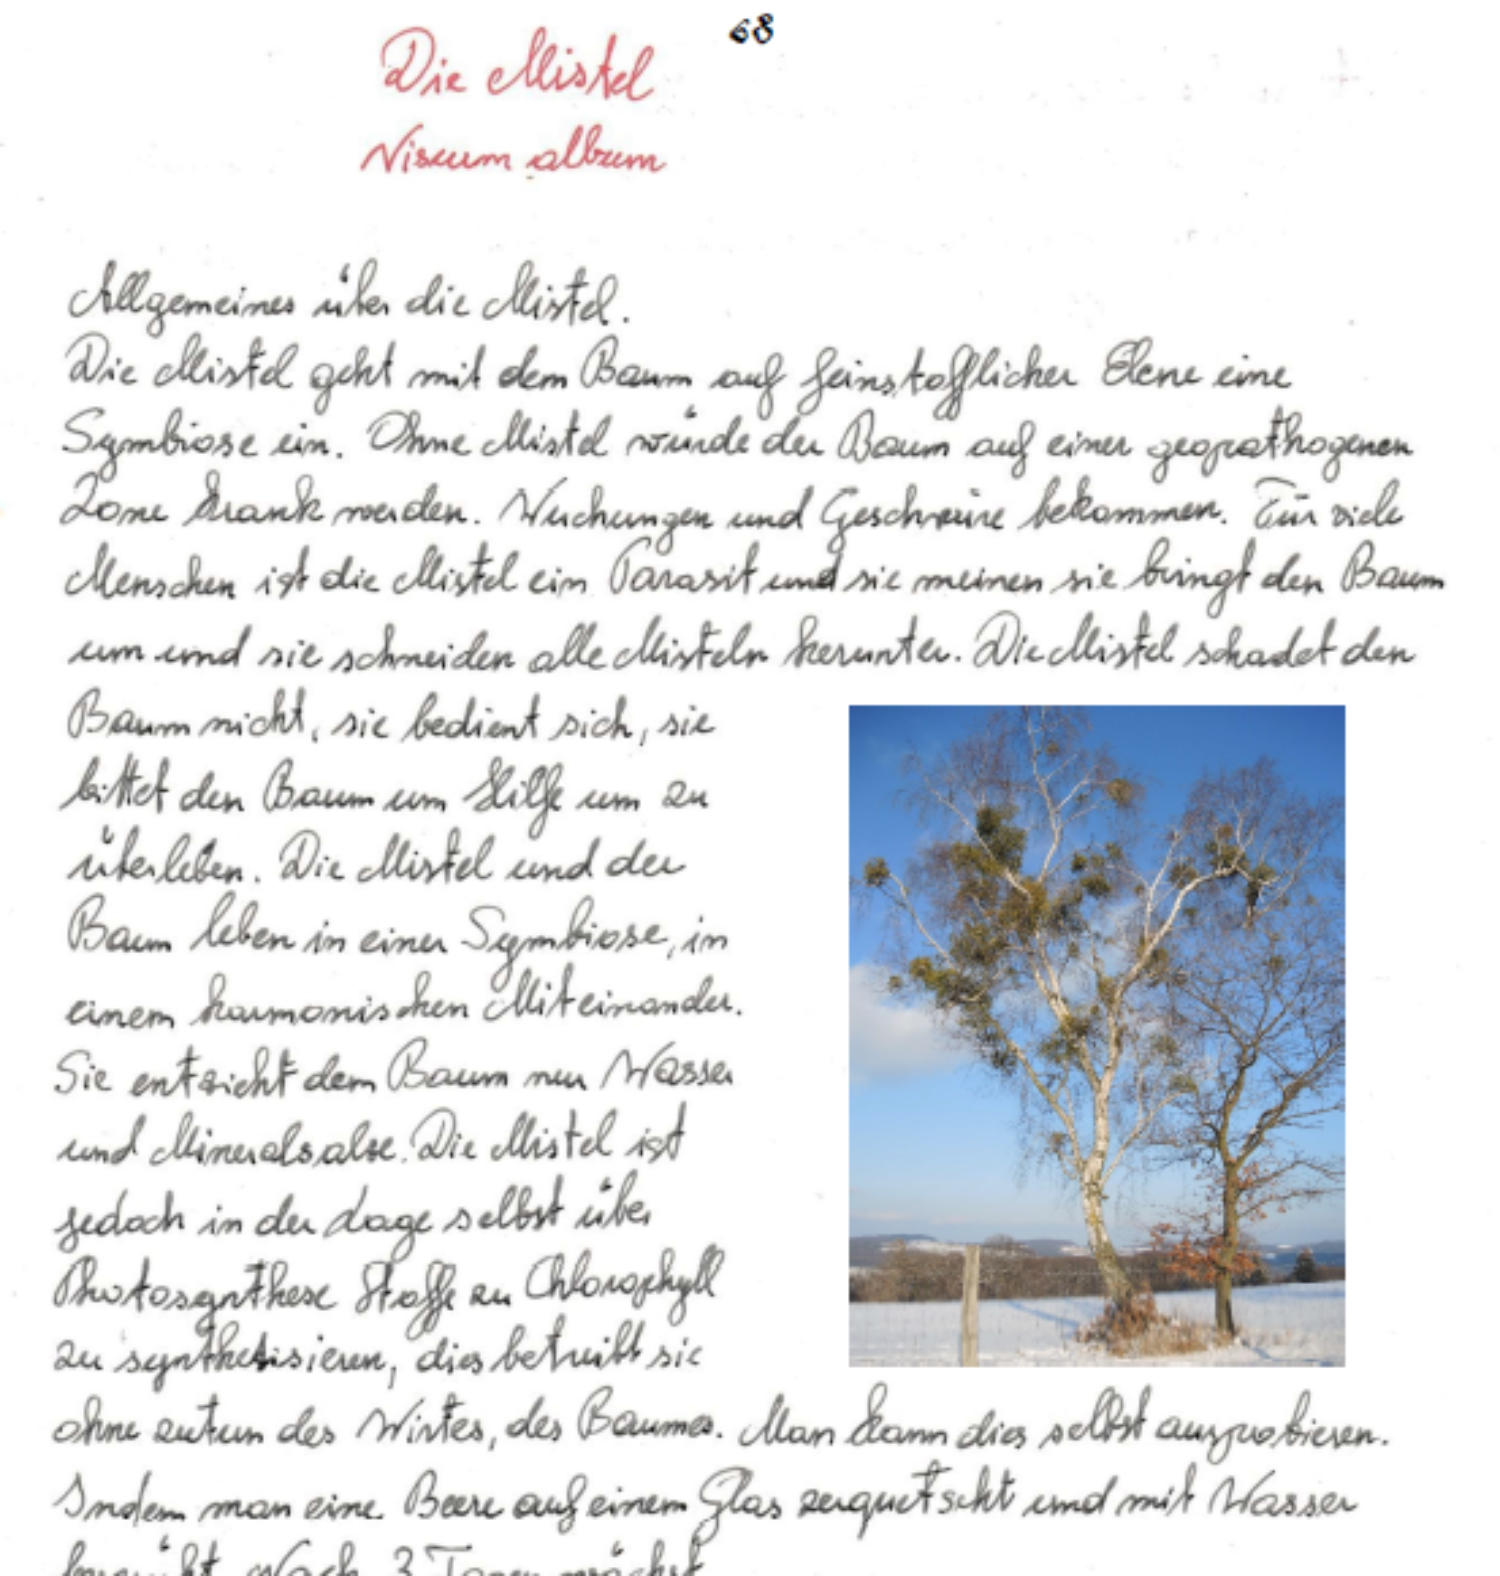 68
Die Mistel
Viscum album
Allgemeines über die Mistel.
Die Mistel geht mit dem Baum auf feinstofflicher Ebene eine
Symbiose ein. Ohne Mistel würde der Baum auf einer geopathogenen
Zone krank werden. Wuchungen und Geschwüre bekommen. Für viele
Menschen ist die Mistel ein Parasit und sie meinen sie bringt den Baum
um und sie schneiden alle Misteln herunter. Die Mistel schadet den
Baum nicht, sie bedient sich, sie
bittet den Baum um Hilfe um zu
überleben. Die Mistel und der
Baum leben in einer Symbiose, in
einem harmonischen Miteinander.
Sie entzieht dem Baum nur Wasser
und Mineralsalze. Die Mistel ist
jedoch in der Lage selbst über
Photosynthese Stoffe zu Chlorophyll
zu synthetisieren, dies betreibt sie
ohne zutun des Wirtes, des Baumes. Man kann dies selbst ausprobieren.
Indem man eine Beere auf einem Glas zerquetscht und mit Wasser
besprüht. Nach 3 Tagen wächst